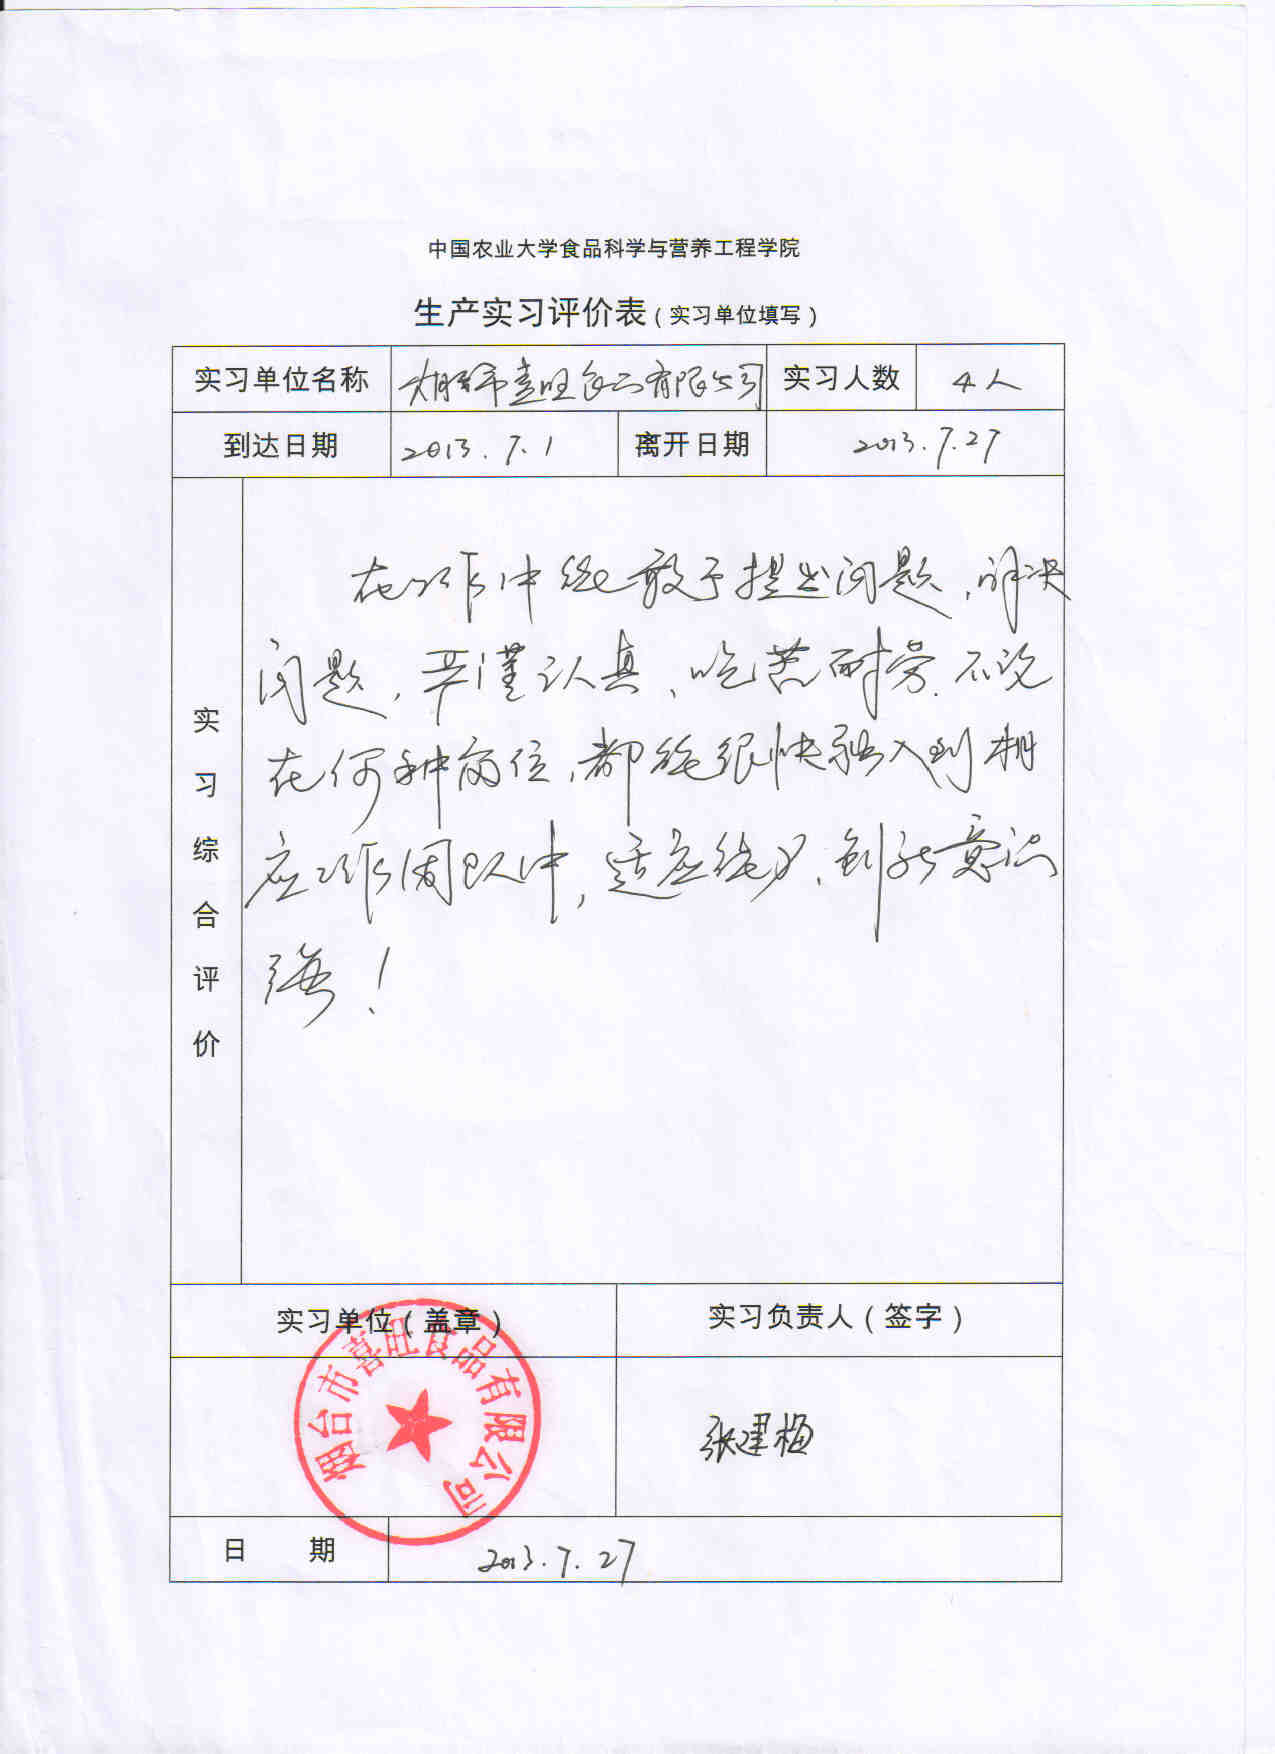 中国农业大学食品科学与营养工程学院
生产实习评价表（实习单位填写）
实习单位名称 烟台市喜旺食品有限公司 实习人数 4人
到达日期 2013.7.1 离开日期 2013.7.27
实习综合评价
在工作中能敢于提出问题，解决
问题，严谨认真、吃苦耐劳．不论
在何种岗位，都能很快融入到相
应工作团队中，适应能力、创新意识
强！
实习单位（盖章） 实习负责人（签字）
烟台市喜旺食品有限公司
张建梅
日 期 2013.7.27